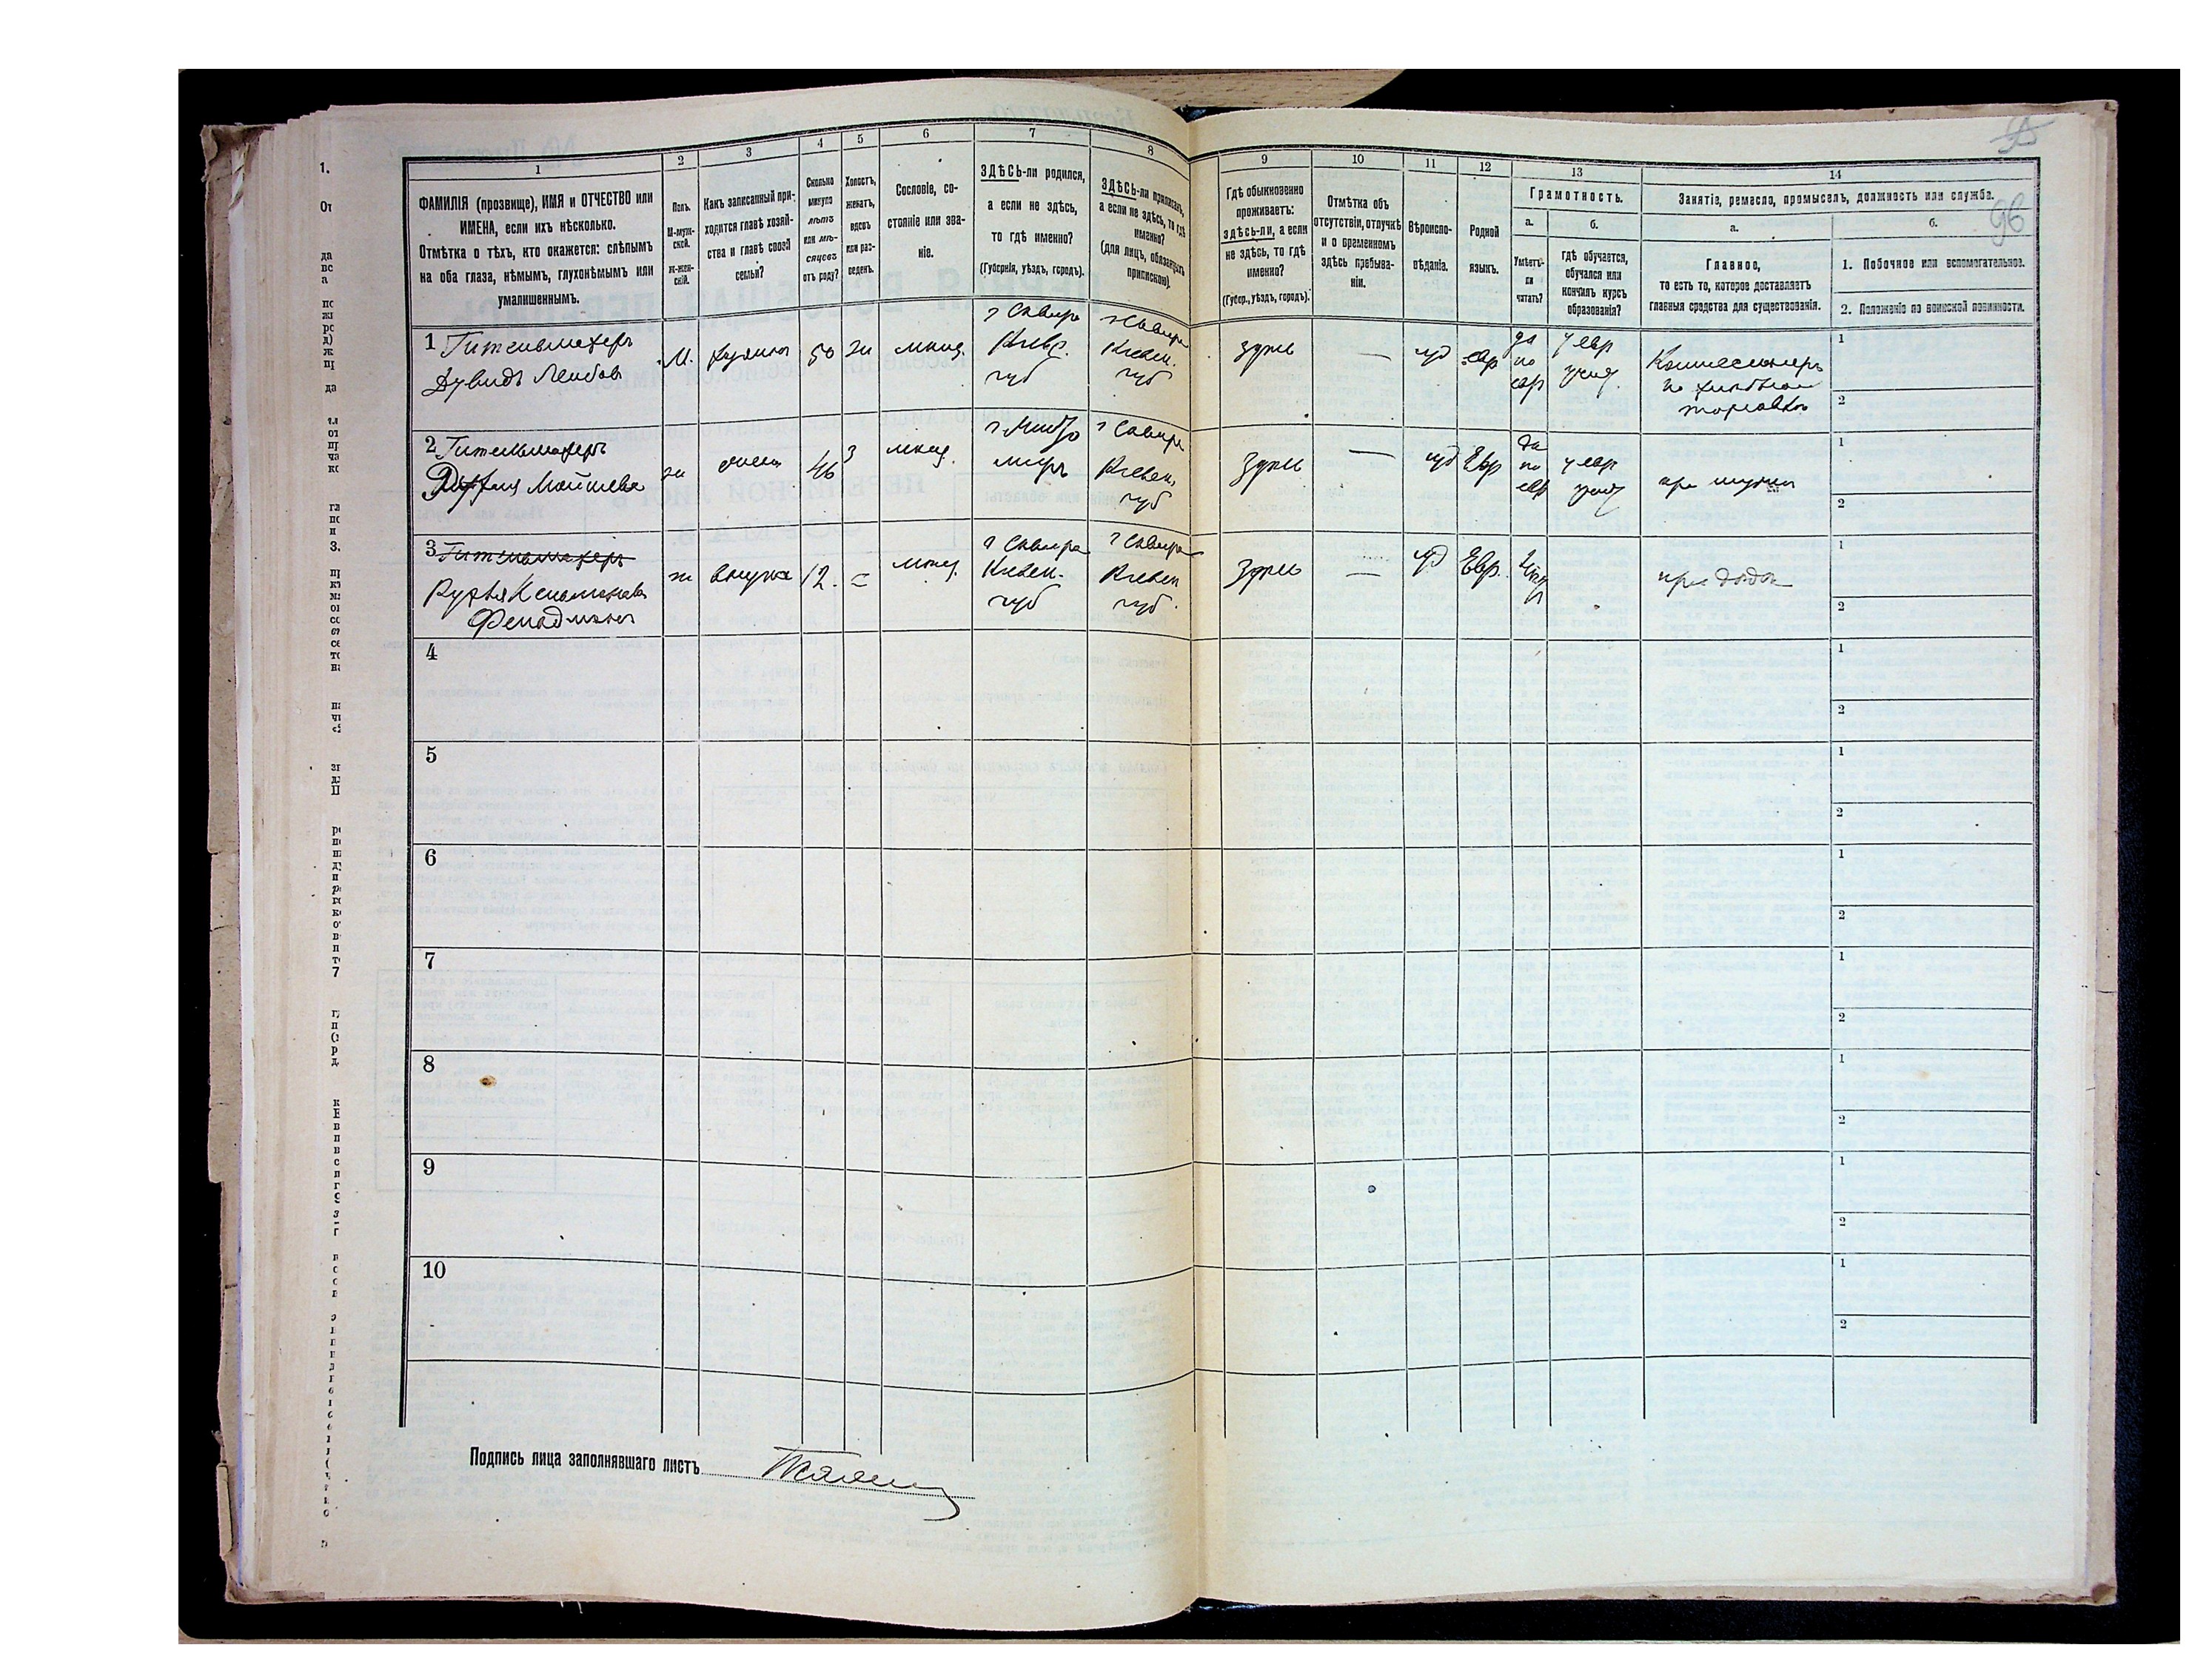 1 2 3 4 5 6 7 8 9 10 11 12 13 14
ФАМИЛІЯ (прозвище), ИМЯ и ОТЧЕСТВО или
ИМЕНА, если ихъ нѣсколько.
Отмѣтка о тѣхъ, кто окажется: слѣпымъ
на оба глаза, нѣмымъ, глухонѣмымъ или
умалишеннымъ.
Полъ.
М-муж-
ской.
ж-жен-
скій.
Какъ записанный при-
ходится главѣ хозяй-
ства и главѣ своей
семьи?
Сколько
минуло
лѣтъ
или мѣ-
сяцевъ
отъ роду?
Холостъ,
женатъ,
вдовъ
или раз-
веденъ.
Сословіе, со-
стояніе или зва-
ніе.
ЗДѢСЬ-ли родился,
а если не здѣсь,
то гдѣ именно?
(Губернія, уѣздъ, городъ).
ЗДѢСЬ-ли приписанъ,
а если не здѣсь, то гдѣ
именно?
(для лицъ, обязанныхъ
припиской).
Гдѣ обыкновенно
проживаетъ:
здѣсь-ли, а если
не здѣсь, то гдѣ
именно?
(Губер., уѣздъ, городъ).
Отмѣтка объ
отсутствіи, отлучкѣ
и о временномъ
здѣсь пребыва-
ніи.
Вѣроиспо-
вѣданіе.
Родной
языкъ.
Грамотность.
а.
Умѣетъ-
ли
читать?
б.
гдѣ обучается,
обучался или
кончилъ курсъ
образованія?
Занятіе, ремесло, промыселъ, должность или служба.
96
а.
Главное,
то есть то, которое доставляетъ
главныя средства для существованія.
б.
1. Побочное или вспомогательное.
2. Положеніе по воинской повинности.
1 Гительмахеръ
Дувидъ Лейбовъ
М. хозяинъ 50 жн мѣщ.
г Сквира
Кіев.
губ
г Сквира
Кіевск.
губ
здѣсь — іуд евр
да
по
евр
у евр
учит.
Комиссионеръ
по хлѣбной
торговлѣ
1
2
2 Гительмахеръ
Мойшева
ж жена 46 з мѣщ.
г Сквира
Кіевск.
губ
здѣсь — іуд Евр
да
по
евр
у евр
учит
при мужѣ
1
2
3 Гительмахеръ
Рухля Кельманова
Фельдманъ
ж внучка 12. = мѣщ.
г Сквира
Кіевск.
губ
г Сквира
Кіевск
губ.
здѣсь — іуд Евр.
при дѣдѣ
1
2
4
1
2
5
1
2
6
1
2
7
1
2
8
1
2
9
1
2
10
1
2
Подпись лица заполнявшаго листъ